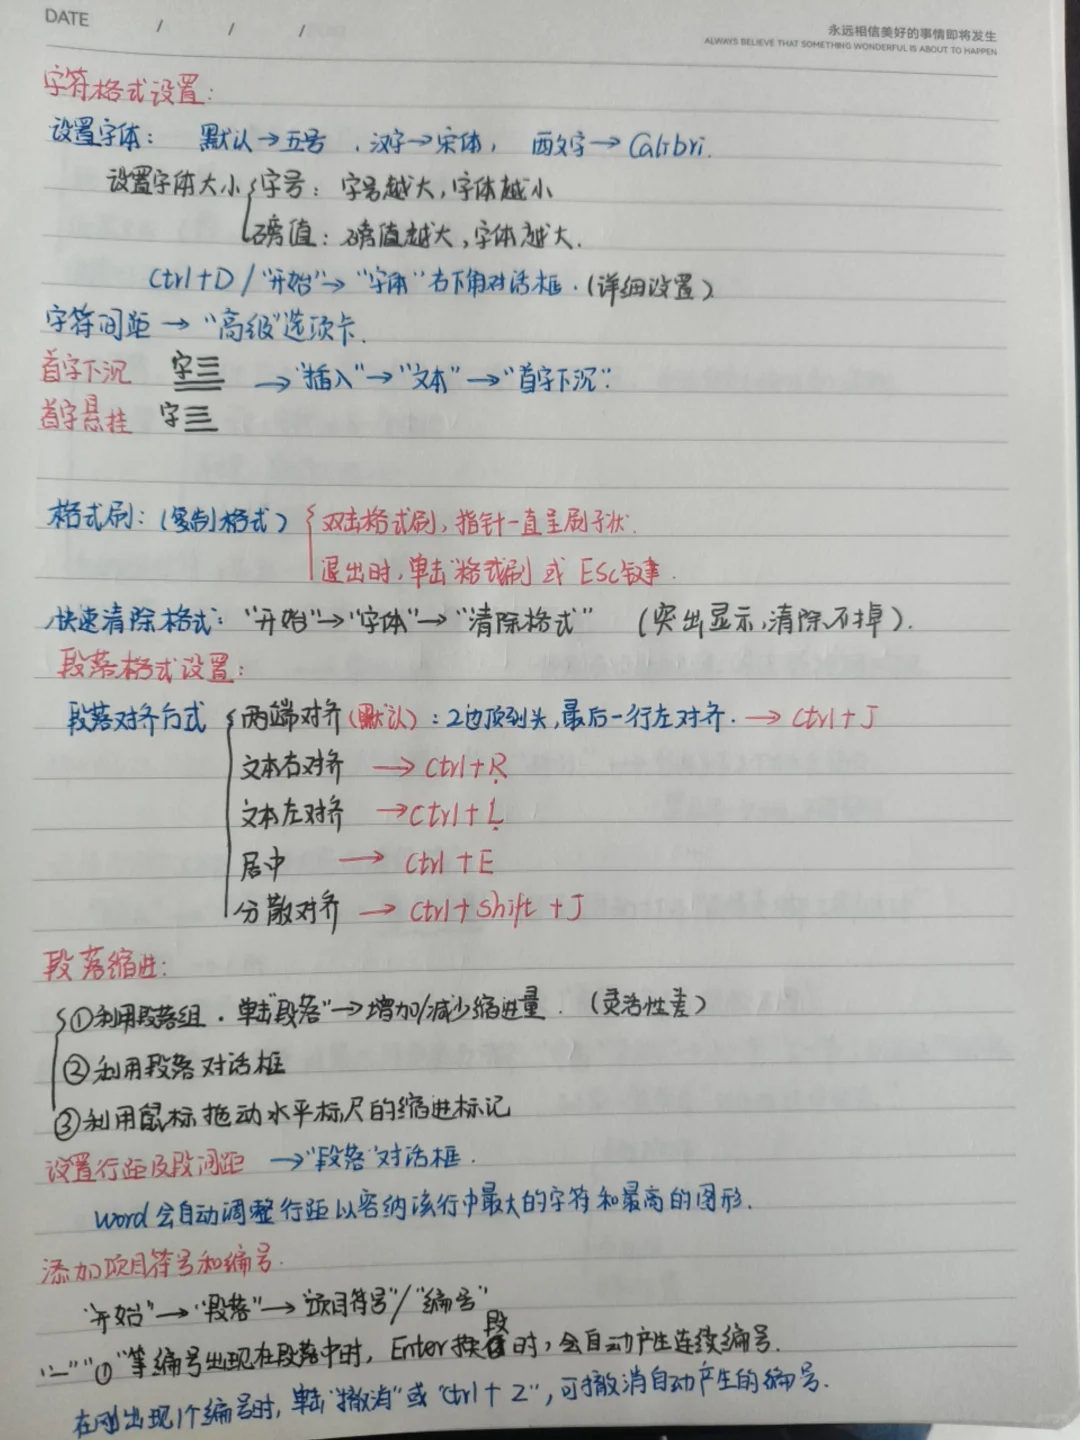 DATE / / /
永远相信美好的事情即将发生
ALWAYS BELIEVE THAT SOMETHING WONDERFUL IS ABOUT TO HAPPEN
字符格式设置:
设置字体: 默认→五号 ,汉字→宋体, 西文字→Calibri.
设置字体大小{字号: 字号越大,字体越小
磅值: 磅值越大,字体越大.
Ctrl+D / "开始"→"字体"右下角对话框.(详细设置)
字符间距→"高级"选项卡.
首字下沉 字三 →"插入"→"文本"→"首字下沉".
首字悬挂 字三
格式刷:(复制格式){双击格式刷,指针一直呈刷子状.
退出时,单击"格式刷"或 ESC键.
快速清除格式: "开始"→"字体"→"清除格式" (突出显示,清除不掉).
段落格式设置:
段落对齐方式{两端对齐(默认):2边顶到头,最后一行左对齐.→Ctrl+J
文本右对齐 →Ctrl+R
文本左对齐 →Ctrl+L
居中 → Ctrl+E
分散对齐 → Ctrl+Shift+J
段落缩进:
①利用段落组.单击"段落"→增加/减少缩进量.(灵活性差)
②利用段落对话框
③利用鼠标拖动水平标尺的缩进标记
设置行距及段间距 →"段落"对话框.
Word会自动调整行距以容纳该行中最大的字符和最高的图形.
添加项目符号和编号.
"开始"→"段落"→"项目符号"/"编号"
"一""①"等编号出现在段落中时,Enter换段时,会自动产生连续编号.
在刚出现1个编号时,单击"撤消"或"Ctrl+Z",可撤消自动产生的编号.